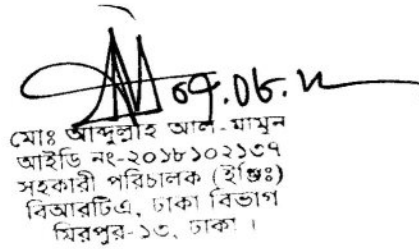 ০৭.০৮.২
মোঃ আব্দুল্লাহ আল- মামুন
আইডি নং-২০১৮১০২১৩৭
সহকারী পরিচালক (ইঞ্জিঃ)
বিআরটিএ, ঢাকা বিভাগ
মিরপুর-১৩, ঢাকা ।